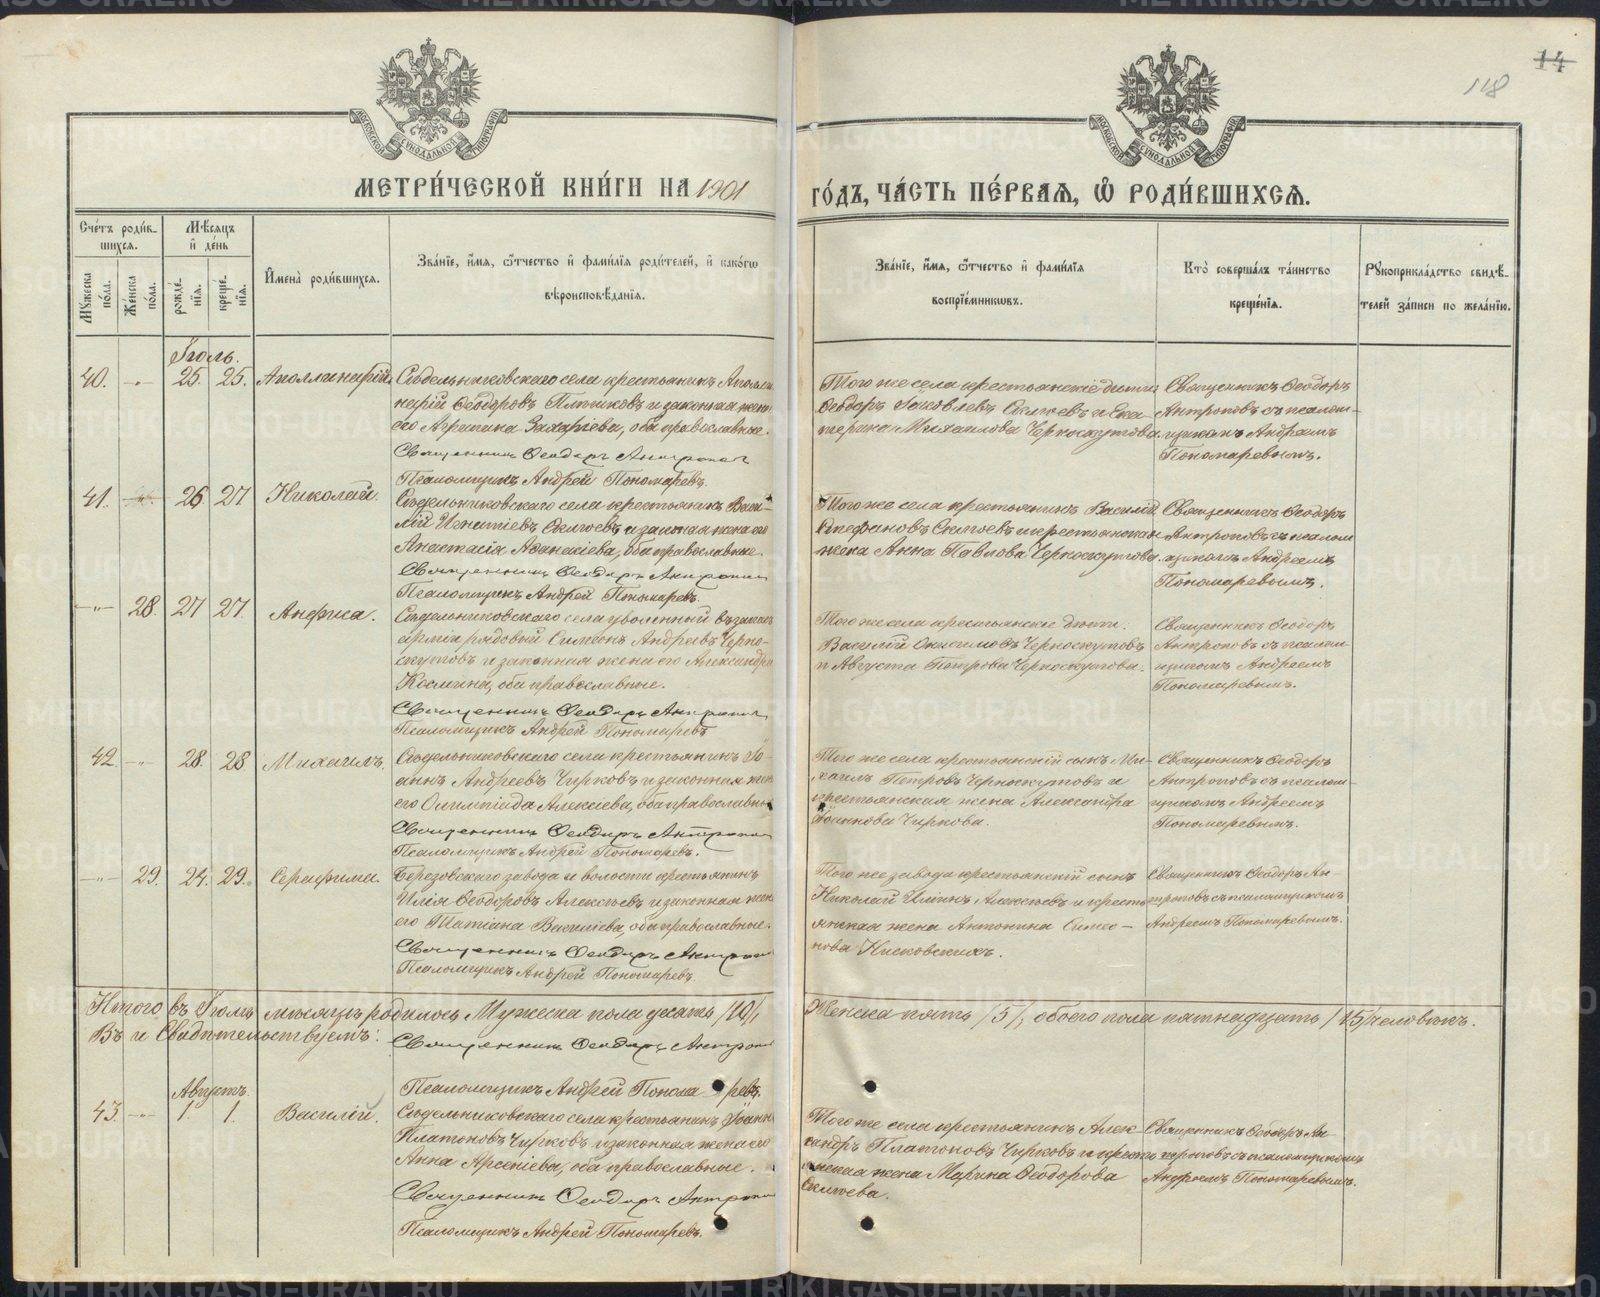 118
14
МЕТРИЧЕСКОЙ КНИГИ НА 1901
ГОДЪ, ЧАСТЬ ПЕРВАЯ, Ѡ РОДИВШИХСЯ.
Счетъ родив-
шихся.
Мѣсяцъ
и день
Мужеска
пола.
Женска
пола.
рожде-
нія.
креще-
нія.
Имена родившихся.
Званіе, имя, ѿчество и фамилія родителей, и какогѡ
вѣроисповѣданія.
Званіе, имя, ѿчество и фамилія
воспріемниковъ.
Кто совершалъ таинство
крещенія.
Рукоприкладство свидѣ-
телей записи по желанію.
Іюль.
40. -"- 25. 25. Аполлинарій.
Сѣдельниковскаго села крестьянинъ Аполли
нарій Ѳеодоровъ Плотниковъ и законная жена
его Агрипина Захарьева, оба православные.
Священникъ Ѳеодоръ Антропов
Псаломщикъ Андрей Пономаревъ.
Того же села крестьянскіе дѣти
Ѳеодоръ Яковлевъ и Ека
терина Михаилова Черноскутова.
Священникъ Ѳеодоръ
Антроповъ съ псалом-
щикомъ Андреемъ
Пономаревымъ.
41. -"- 26 27 Николай.
Сѣдельниковскаго села крестьянинъ Васи-
лій Игнатіевъ и законная жена его
Анастасія Аѳанасіева, оба православные.
Священникъ Ѳеодоръ Антропов
Псаломщикъ Андрей Пономаревъ.
Того же села крестьянинъ Василій
Стефановъ и крестьянская
жена Анна Павлова Черноскутова.
Священникъ Ѳеодоръ
Антроповъ съ псалом
щикомъ Андреемъ
Пономаревымъ.
-"- 28. 27 27. Анфиса.
Сѣдельниковскаго села уволенный въ запасъ
арміи рядовый Симеонъ Андреевъ Черно-
скутовъ и законная жена его Александра
Космина, оба православные.
Священникъ Ѳеодоръ Антропов
Псаломщикъ Андрей Пономаревъ
Того же села крестьянскіе дѣти.
Василій Черноскутовъ
и Августа Петрова Черноскутова.
Священникъ Ѳеодоръ
Антроповъ съ псалом
щикомъ Андреемъ
Пономаревымъ.
42. -"- 28. 28 Михаилъ.
Сѣдельниковскаго села крестьянинъ Іо-
аннъ Андреевъ Чирковъ и законная жена
его Олимпіада Алексіева, оба православные
Священникъ Ѳеодоръ Антропов
Псаломщикъ Андрей Пономаревъ.
Того же села крестьянскій сынъ Ми-
хаилъ Петровъ Черноскутовъ и
крестьянская жена Александра
Іоаннова Чиркова.
Священникъ Ѳеодоръ
Антроповъ съ псалом-
щикомъ Андреемъ
Пономаревымъ.
-"- 29. 24. 29. Серафима.
Березовскаго завода и волости крестьянинъ
Илія Ѳеодоровъ Алексѣевъ и законная жена
его Татіана Василіева, оба православные.
Священникъ Ѳеодоръ Антропов
Псаломщикъ Андрей Пономаревъ.
Того же завода крестьянскій сынъ
Николай Ильинъ Алексѣевъ и кресть
янская жена Антонина Симео-
нова
Священникъ Ѳеодоръ Ан
троповъ съ псаломщикомъ
Андреемъ Пономаревымъ.
Итого въ Іюлѣ мѣсяцѣ родилось Мужеска пола десять /10/,
Женска пять /5/, обоего пола пятнадцать /15/ человѣкъ.
Въ и Свидѣтельствуемъ:
Священникъ Ѳеодоръ Антропов
Псаломщикъ Андрей Пономаревъ.
Августъ.
43. -"- 1. 1. Василій.
Сѣдельниковскаго села крестьянинъ Іоаннъ
Платоновъ Чирковъ и законная жена его
Анна Арсеніева, оба православные.
Священникъ Ѳеодоръ Антропов
Псаломщикъ Андрей Пономаревъ.
Того же села крестьянинъ Алек-
сандръ Платоновъ Чирковъ и кресть
янская жена Марина Ѳеодорова
Священникъ Ѳеодоръ Ан-
троповъ съ псаломщикомъ
Андреемъ Пономаревымъ.
METRIKI.GASO-URAL.RU